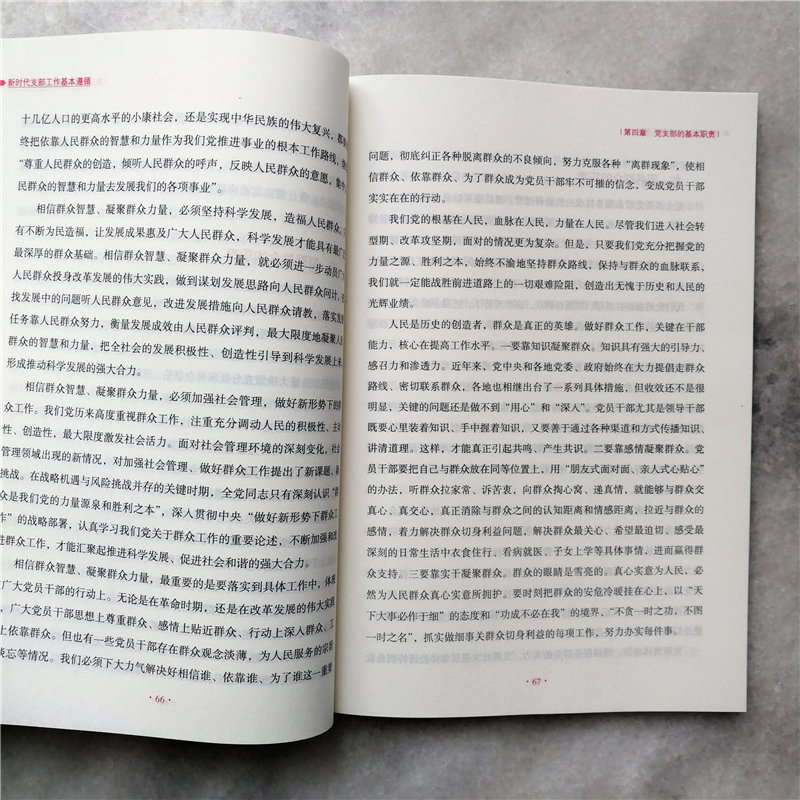 新时代支部工作基本遵循
十几亿人口的更高水平的小康社会，还是实现中华民族的伟大复兴，都
终把依靠人民群众的智慧和力量作为我们党推进事业的根本工作路线，
“尊重人民群众的创造，倾听人民群众的呼声，反映人民群众的意愿，集中
民群众的智慧和力量去发展我们的各项事业”。
相信群众智慧、凝聚群众力量，必须坚持科学发展，造福人民群众。
有不断为民造福，让发展成果惠及广大人民群众，科学发展才能具有最广
最深厚的群众基础。相信群众智慧、凝聚群众力量，就必须进一步动员广
人民群众投身改革发展的伟大实践，做到谋划发展思路向人民群众问计，
找发展中的问题听人民群众意见，改进发展措施向人民群众请教，落实发
任务靠人民群众努力，衡量发展成效由人民群众评判，最大限度地凝聚人
群众的智慧和力量，把全社会的发展积极性、创造性引导到科学发展上来
形成推动科学发展的强大合力。
相信群众智慧、凝聚群众力量，必须加强社会管理，做好新形势下的群
众工作。我们党历来高度重视群众工作，注重充分调动人民的积极性、主动
性、创造性，最大限度激发社会活力。面对社会管理环境的深刻变化，社会
管理领域出现的新情况，对加强社会管理、做好群众工作提出了新课题、新
挑战。在战略机遇与风险挑战并存的关键时期，全党同志只有深刻认识“群
众是我们党的力量源泉和胜利之本”，深入贯彻中央“做好新形势下群众工
作”的战略部署，认真学习我们党关于群众工作的重要论述，不断加强和改
进群众工作，才能汇聚起推进科学发展、促进社会和谐的强大合力。
相信群众智慧、凝聚群众力量，最重要的是要落实到具体工作中，体现
广大党员干部的行动上。无论是在革命时期，还是在改革发展的伟大实践
，广大党员干部思想上尊重群众、感情上贴近群众、行动上深入群众、工
上依靠群众。但也有一些党员干部存在群众观念淡薄，为人民服务的宗旨
淡忘等情况。我们必须下大力气解决好相信谁、依靠谁、为了谁这一重要
·66·
第四章 党支部的基本职责
问题，彻底纠正各种脱离群众的不良倾向，努力克服各种“离群现象”，使相
信群众、依靠群众、为了群众成为党员干部牢不可摧的信念，变成党员干部
实实在在的行动。
我们党的根基在人民，血脉在人民，力量在人民。尽管我们进入社会转
型期、改革攻坚期，面对的情况更为复杂。但是，只要我们党充分把握党的
力量之源、胜利之本，始终不渝地坚持群众路线，保持与群众的血脉联系，
我们就一定能战胜前进道路上的一切艰难险阻，创造出无愧于历史和人民的
光辉业绩。
人民是历史的创造者，群众是真正的英雄。做好群众工作，关键在干部
能力，核心在提高工作水平。一要靠知识凝聚群众。知识具有强大的引导力、
感召力和渗透力。近年来，党中央和各地党委、政府始终在大力提倡走群众
路线、密切联系群众，各地也相继出台了一系列具体措施，但收效还不是很
明显，关键的问题还是做不到“用心”和“深入”。党员干部尤其是领导干部
既要心里装着知识、手中握着知识，又要善于通过各种渠道和方式传播知识、
讲清道理。这样，才能真正引起共鸣、产生共识。二要靠感情凝聚群众。党
员干部要把自己与群众放在同等位置上，用“朋友式面对面、亲人式心贴心”
的办法，听群众拉家常、诉苦衷，向群众掏心窝、递真情，就能够与群众交
真心、真交心，真正消除与群众之间的认知距离和情感距离，拉近与群众的
感情，着力解决群众切身利益问题，解决群众最关心、希望最迫切、感受最
深刻的日常生活中衣食住行、看病就医、子女上学等具体事情，进而赢得群
众支持。三要靠实干凝聚群众。群众的眼睛是雪亮的。真心实意为人民，必
然为人民群众真心实意所拥护。要时刻把群众的安危冷暖挂在心上，以“天
下大事必作于细”的态度和“功成不必在我”的境界，“不贪一时之功、不图
一时之名”，抓实做细事关群众切身利益的每项工作，努力办实每件事。
·67·